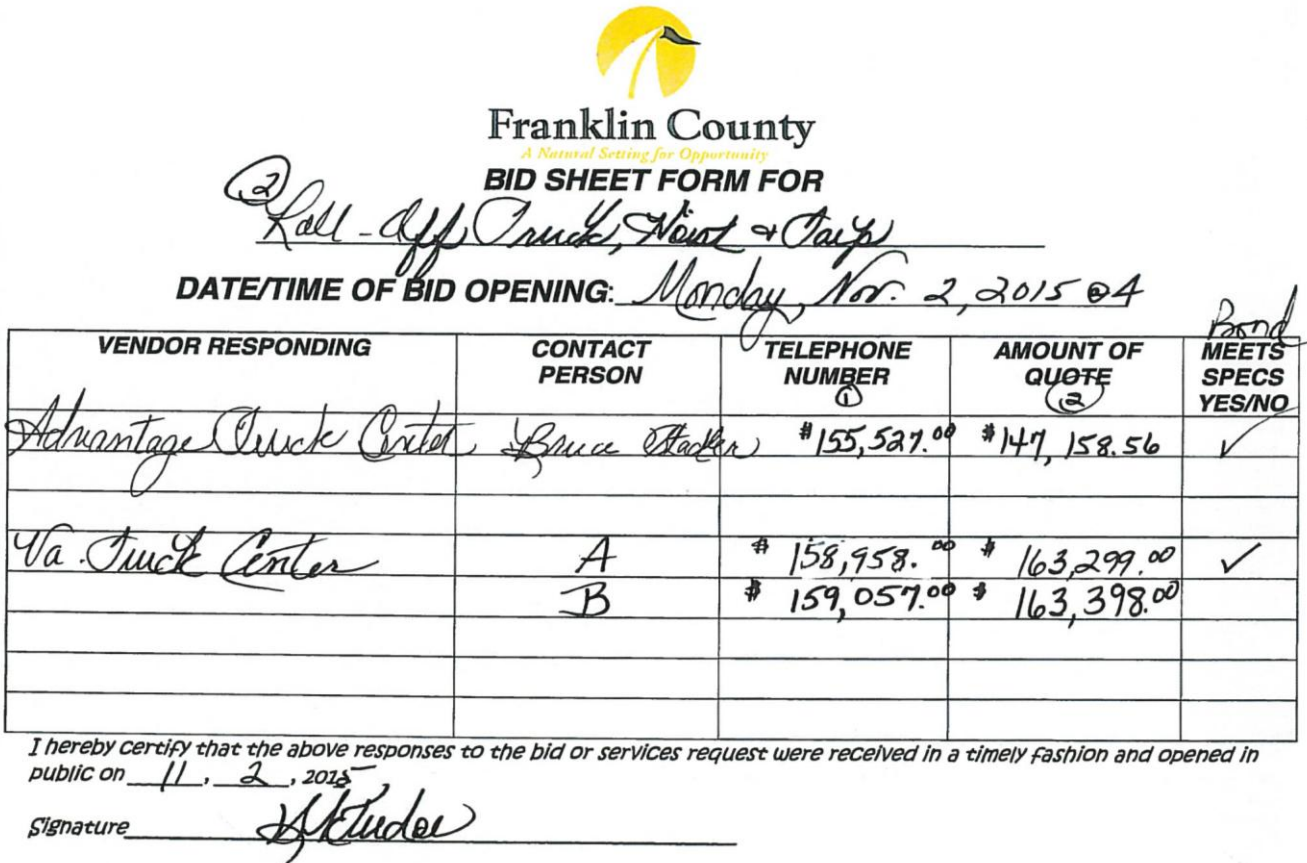 Franklin County
A Natural Setting for Opportunity
BID SHEET FORM FOR
② Roll-Off Truck, Hoist & Tarp
DATE/TIME OF BID OPENING: Monday, Nov. 2, 2015 @4
Bond
VENDOR RESPONDING CONTACT PERSON TELEPHONE NUMBER ① AMOUNT OF QUOTE ② MEETS SPECS YES/NO
Advantage Truck Center Bruce Stadler $155,527.00 $147,158.56 ✓
Va. Truck Center A $158,958.00 $163,299.00 ✓
B $159,057.00 $163,398.00
I hereby certify that the above responses to the bid or services request were received in a timely fashion and opened in
public on 11, 2, 2015
Signature